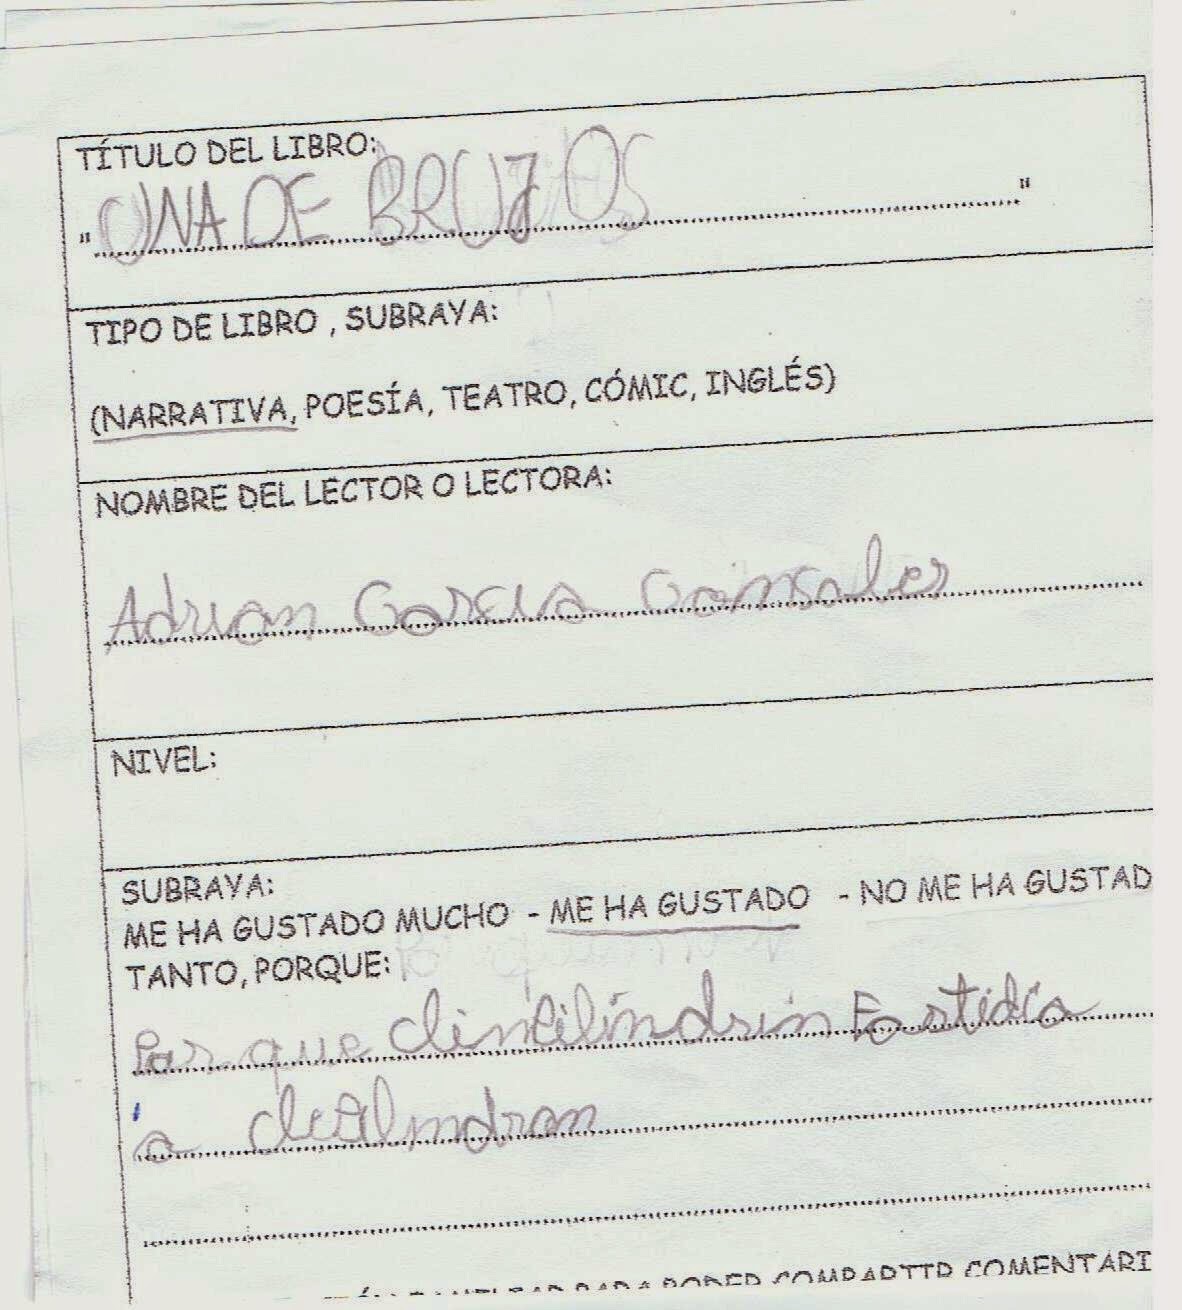 TÍTULO DEL LIBRO:
"UNA DE BRUJOS"
TIPO DE LIBRO , SUBRAYA:
(NARRATIVA, POESÍA, TEATRO, CÓMIC, INGLÉS)
NOMBRE DEL LECTOR O LECTORA:
Adrian Garcia Gonsales
NIVEL:
SUBRAYA:
ME HA GUSTADO MUCHO - ME HA GUSTADO - NO ME HA GUSTAD
TANTO, PORQUE:
Por que Fastidia
a
PARA PODER COMPARTIR COMENTARI